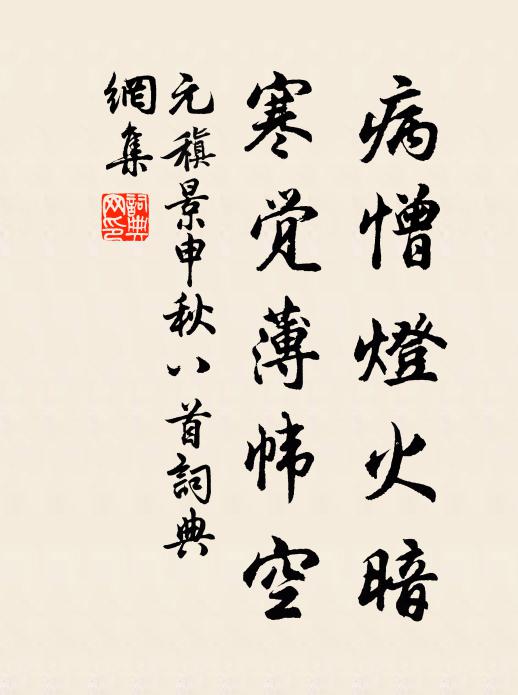 病憎燈火暗
寒觉薄帏空
元稹景申秋八首詞典
網集
詞典
网印